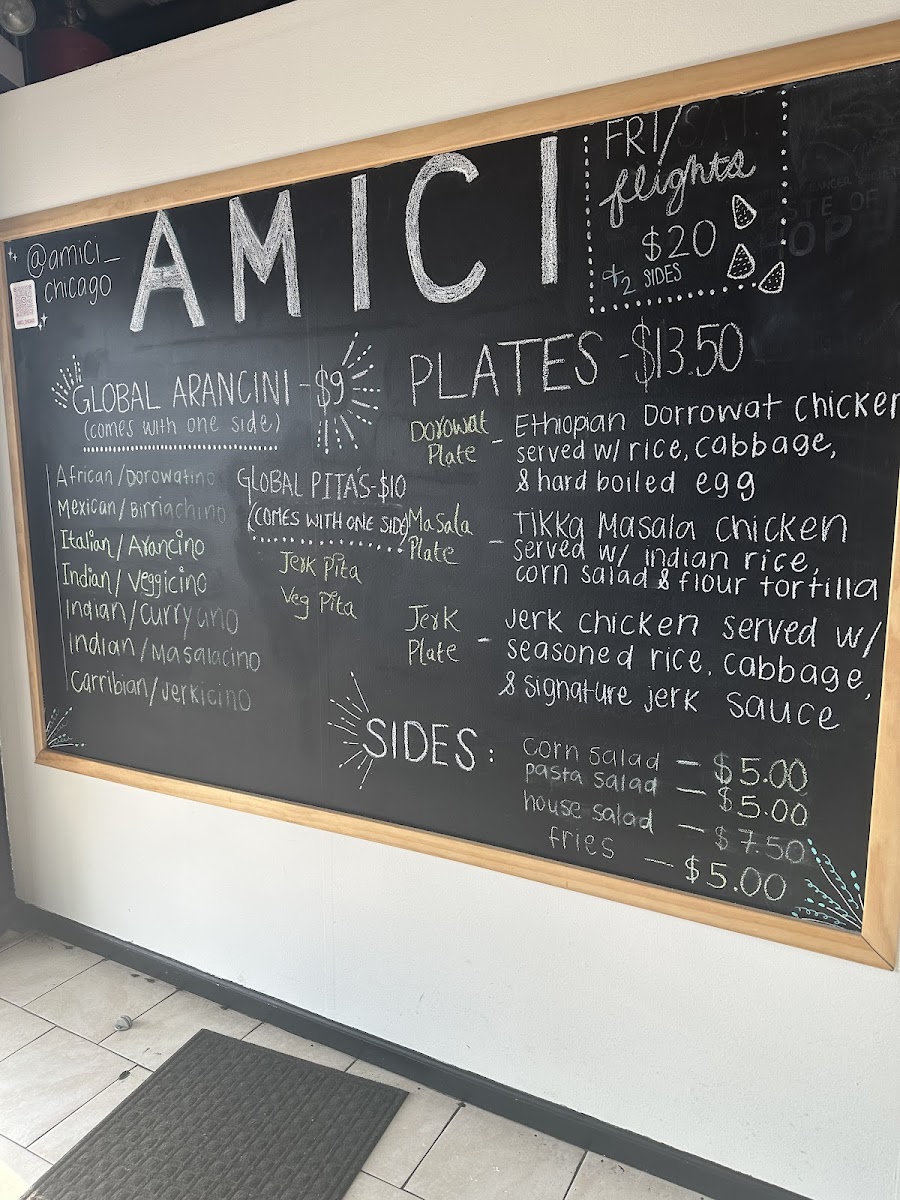 @amici_
chicago
AMICI
FRI/SAT.
flights
$20
+2 SIDES
GLOBAL ARANCINI - $9
(comes with one side)
African/Dorowatino
Mexican/Birriachino
Italian/Arancino
Indian/Veggicino
Indian/Curryano
Indian/Masalacino
Carribian/Jerkicino
GLOBAL PITA'S-$10
(COMES WITH ONE SIDE)
Jerk Pita
Veg Pita
PLATES - $13.50
Dorowat
Plate -
Ethiopian Dorrowat chicken
served w/ rice, cabbage,
& hard boiled egg
Masala
Plate -
Tikka Masala chicken
served w/ indian rice,
corn salad & flour tortilla
Jerk
Plate -
Jerk chicken served w/
seasoned rice, cabbage,
& signature jerk sauce
SIDES:
corn salad — $5.00
pasta salad — $5.00
house salad — $7.50
fries — $5.00